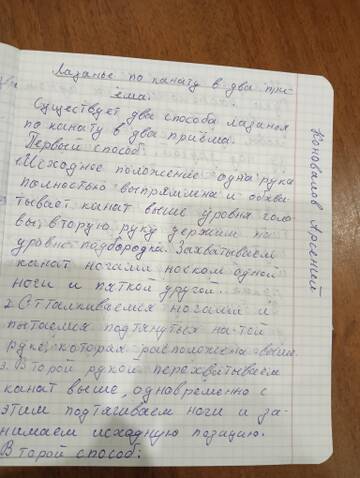 Лазанье по канату в два при-
ёма.
Существует два способа лазания
по канату в два приёма.
Первый способ:
1. Исходное положение одна рука
полностью выпрямлена и обхва-
тывает канат выше уровня голо-
вы, вторую руку держим на
уровне подбородка. Захватываем
канат ногами носком одной
ноги и пяткой другой.
2. Отталкиваемся ногами и
пытаемся подтянуться на той
руке, которая расположена выше
3. Второй рукой перехватываем
канат выше, одновременно с
этим подтягиваем ноги и за-
нимаем исходную позицию.
Второй способ:
Коновалов Арсений